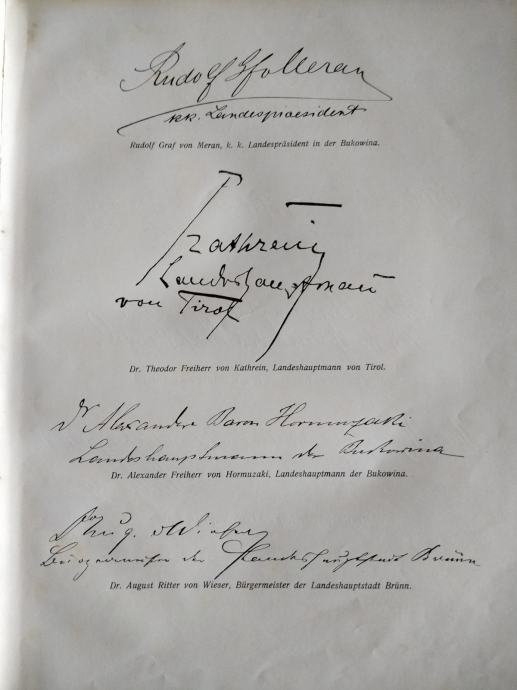 Rudolf Gf v Meran
kk. Landespraesident
Rudolf Graf von Meran, k. k. Landespräsident in der Bukowina.
Kathrein
Landeshauptmann
von Tirol
Dr. Theodor Freiherr von Kathrein, Landeshauptmann von Tirol.
Dr Alexander Baron Hormuzaki
Landeshauptmann der Bukowina
Dr. Alexander Freiherr von Hormuzaki, Landeshauptmann der Bukowina.
Dr Aug. v Wieser
Bürgermeister der Landeshauptstadt Brünn
Dr. August Ritter von Wieser, Bürgermeister der Landeshauptstadt Brünn.